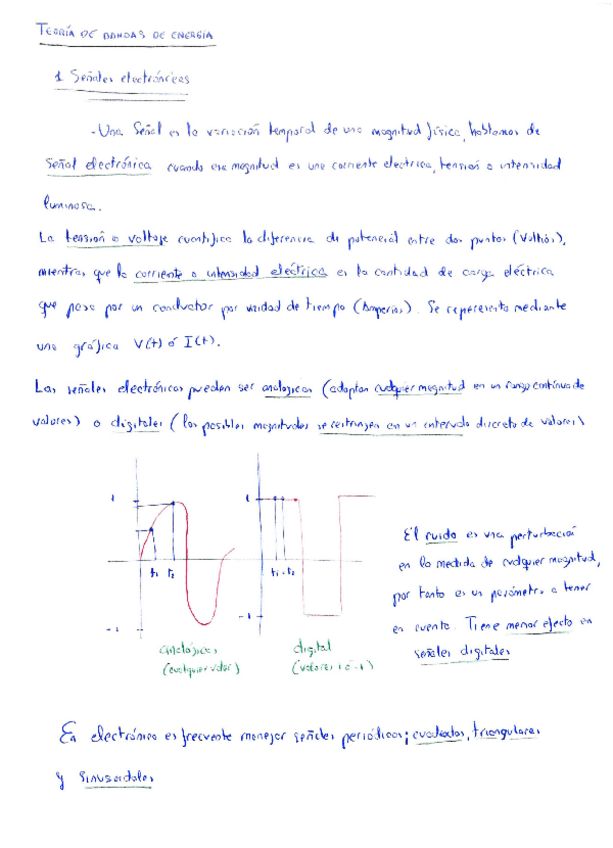 TEORÍA DE BANDAS DE ENERGÍA
1 Señales electrónicas
- Una Señal es la variación temporal de una magnitud física, hablamos de
señal electrónica cuando esa magnitud es una corriente electrica, tensión o intensidad
luminosa.
La tensión o voltaje cuantifica la diferencia de potencial entre dos puntos (Voltios),
mientras que la corriente o intensidad eléctrica es la cantidad de carga eléctrica
que pasa por un conductor por unidad de tiempo (Amperios). Se representa mediante
una gráfica V(t) ó I(t).
Las señales electrónicas pueden ser analógicas (adoptan cualquier magnitud en un rango continuo de
valores) o digitales (las posibles magnitudes se restringen en un intervalo discreto de valores)
1 1
t1 t2 t1 t2
-1 -1
analógicas digital
(cualquier valor) (valores 1 ó -1)
El ruido es una perturbación
en la medida de cualquier magnitud,
por tanto es un parámetro a tener
en cuenta. Tiene menor efecto en
señales digitales
En electrónica es frecuente manejar señales periódicas; cuadradas, triangulares
y sinusoidales